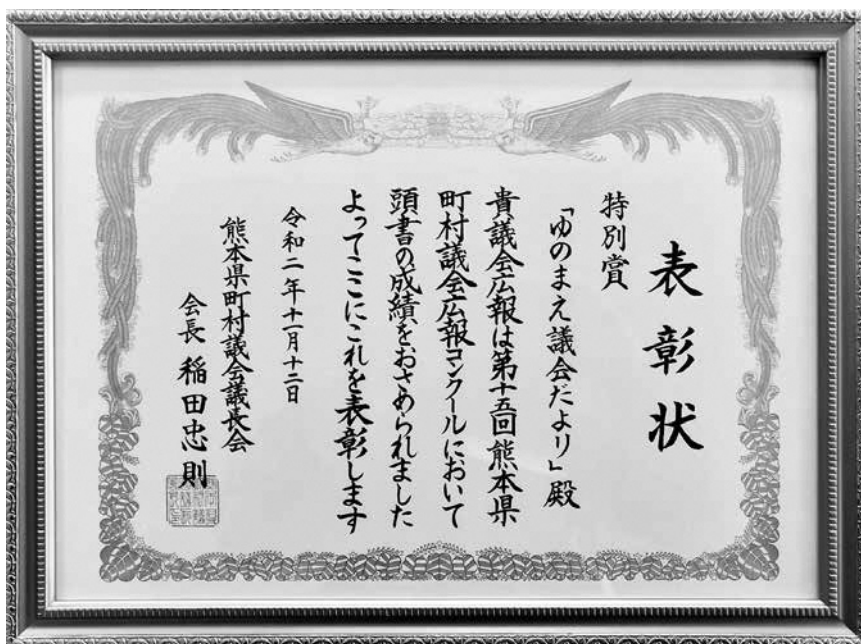 表彰状
特別賞
「ゆのまえ議会だより」殿
貴議会広報は第十五回熊本県
町村議会広報コンクールにおいて
頭書の成績をおさめられました
よってここにこれを表彰します
令和二年十一月十二日
熊本県町村議会議長会
会長 稲田忠則